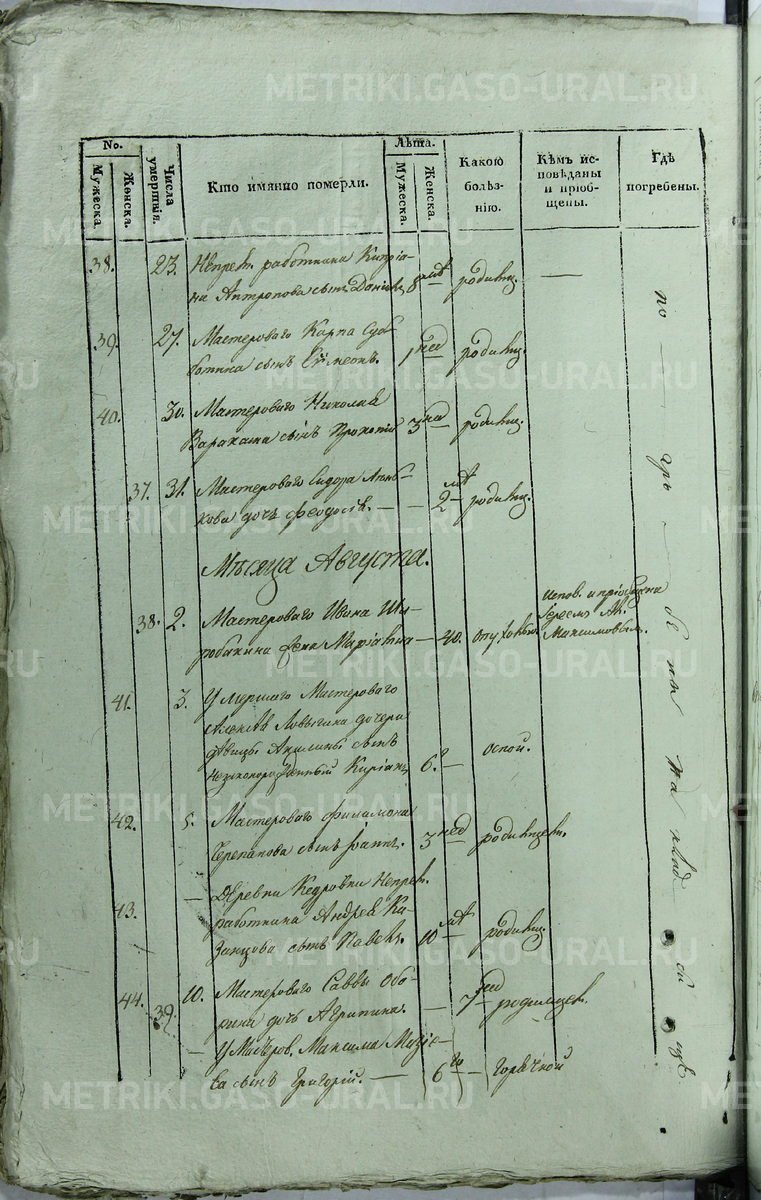 METRIKI.GASO-URAL.RU
No.
Мужеска.
Женска.
Числа умертвія.
Кто имянно померли.
Лѣта.
Мужеска.
Женска.
Какою
болѣз-
нію.
Кѣмъ ис-
повѣданы
и пріоб-
щены.
Гдѣ
погребены.
38. 23. Непрем. работника Кипріа-
на Антропова сынъ 8 родимц.
39. 27. Мастероваго Карпа Суб-
ботина сынъ Сѵмеонъ. 1 нед родимц.
40. 30. Мастероваго Николая
Варакина сынъ Прокопій 3 нед родимц.
37. 31. Мастероваго Сидора
кова дочь Феодосія. — — 2 родимц.
Мѣсяца Августа.
38. 2. Мастероваго Ивана Ши-
робакина жена Маріамна — 40. опухолью.
испов. и пріобщена
Іереемъ
Максимовымъ.
41. 3. Умершаго Мастероваго
Алексѣя Ловыгина дочери
дѣвицы Акилины сынъ
незаконорожденный Киріанъ 6. — оспой.
42. 5. Мастероваго Филимона
Черепанова сынъ Іоаннъ. 3 нед родимцемъ.
43. — Деревни Кедровки Непрем.
работника Андрея Ка-
занцова сынъ Павелъ. 10 родимц.
44. 39. 10. Мастероваго Саввы Обо-
рина дочь Агрипина. — 7 нед родимцемъ.
— У Мастеров. Максима
ва сынъ Григорій. — 6 — горячкой